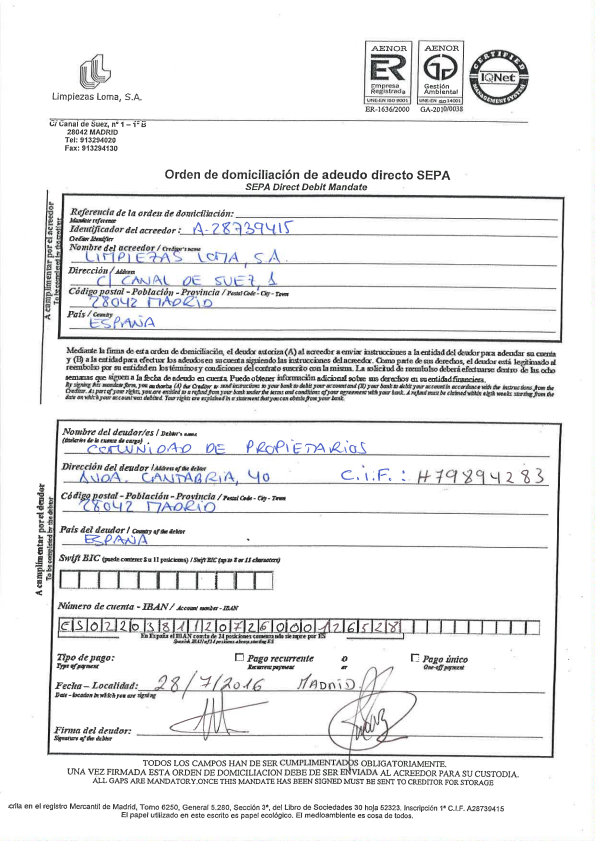 Limpiezas Loma, S.A.
AENOR
ER
Empresa
Registrada
UNE-EN ISO 9001
ER-1636/2000
AENOR
Gestión
Ambiental
UNE-EN ISO 14001
GA-2010/0038
CERTIFIED
IQNet
MANAGEMENT SYSTEM
C/ Canal de Suez, nº 1 – 1º B
28042 MADRID
Tel: 913294020
Fax: 913294130
Orden de domiciliación de adeudo directo SEPA
SEPA Direct Debit Mandate
A cumplimentar por el acreedor
To be completed by the creditor
Referencia de la orden de domiciliación:
Mandate reference
Identificador del acreedor : A-28739415
Creditor Identifier
Nombre del acreedor / Creditor's name
LIMPIEZAS LOMA, S.A.
Dirección / Address
C/ CANAL DE SUEZ 1
Código postal - Población - Provincia / Postal Code - City - Town
28042 MADRID
País / Country
ESPAÑA
Mediante la firma de esta orden de domiciliación, el deudor autoriza (A) al acreedor a enviar instrucciones a la entidad del deudor para adeudar su cuenta
y (B) a la entidad para efectuar los adeudos en su cuenta siguiendo las instrucciones del acreedor. Como parte de sus derechos, el deudor está legitimado al
reembolso por su entidad en los términos y condiciones del contrato suscrito con la misma. La solicitud de reembolso deberá efectuarse dentro de las ocho
semanas que siguen a la fecha de adeudo en cuenta. Puede obtener información adicional sobre sus derechos en su entidad financiera.
By signing this mandate form, you authorise (A) the Creditor to send instructions to your bank to debit your account and (B) your bank to debit your account in accordance with the instructions from the
Creditor. As part of your rights, you are entitled to a refund from your bank under the terms and conditions of your agreement with your bank. A refund must be claimed within eigth weeks starting from the
date on which your account was debited. Your rights are explained in a statement that you can obtain from your bank.
A cumplimentar por el deudor
To be completed by the debtor
Nombre del deudor/es / Debtor's name
(titular/es de la cuenta de cargo)
COMUNIDAD DE PROPIETARIOS
Dirección del deudor / Address of the debtor
AVDA. CANTABRIA, 40 C.I.F.: H79894283
Código postal - Población - Provincia / Postal Code - City - Town
28042 MADRID
País del deudor / Country of the debtor
ESPAÑA
Swift BIC (puede contener 8 u 11 posiciones) / Swift BIC (up to 8 or 11 characters)
Número de cuenta - IBAN / Account number - IBAN
ES0220381120726000126528
En España el IBAN consta de 24 posiciones comenzando siempre por ES
Spanish IBAN of 24 positions always starting ES
Tipo de pago: Pago recurrente o Pago único
Type of payment Recurrent payment or One-off payment
Fecha – Localidad: 28/7/2016 MADRID
Date - location in which you are signing
Firma del deudor:
Signature of the debtor
TODOS LOS CAMPOS HAN DE SER CUMPLIMENTADOS OBLIGATORIAMENTE.
UNA VEZ FIRMADA ESTA ORDEN DE DOMICILIACION DEBE DE SER ENVIADA AL ACREEDOR PARA SU CUSTODIA.
ALL GAPS ARE MANDATORY.ONCE THIS MANDATE HAS BEEN SIGNED MUST BE SENT TO CREDITOR FOR STORAGE
crita en el registro Mercantil de Madrid, Tomo 6250, General 5.280, Sección 3ª, del Libro de Sociedades 30 hoja 52323. Inscripción 1ª C.I.F. A28739415
El papel utilizado en este escrito es papel ecológico. El medioambiente es cosa de todos.